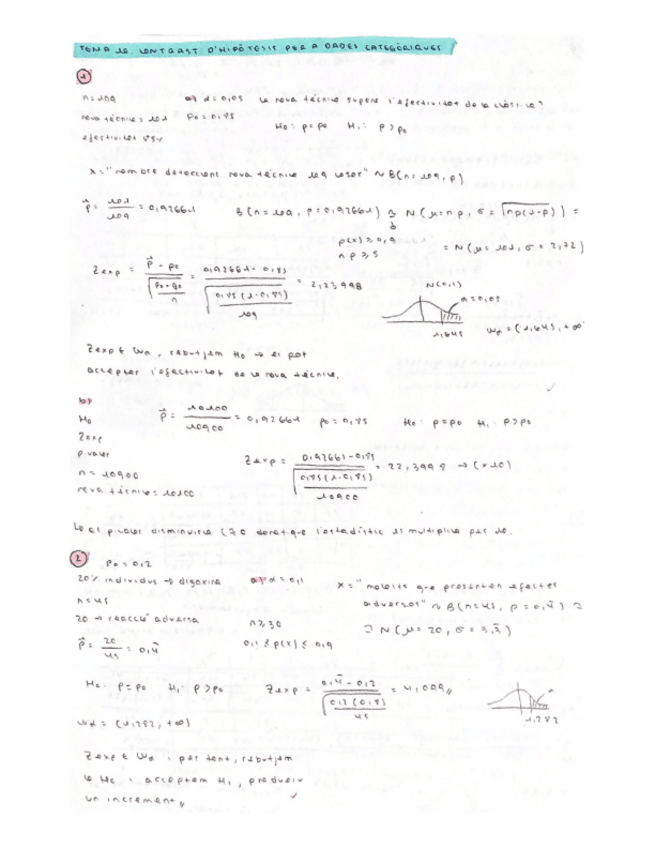 TEMA 10. CONTRAST D'HIPÒTESIS PER A DADES CATEGÒRIQUES
1
n = 109 a) α = 0,05 la nova tècnica supera l'efectivitat de la clàssica?
nova tècnica = 101 p0 = 0,85 H0: p = p0 H1: p > p0
efectivitat 85%
x = "nombre deteccions nova tècnica 109 " ~ B(n = 109, p)
p̂ = 101/109 = 0,92661 B(n = 109, p = 0,92661) ≃ N(μ = np, σ = √np(1-p)) =
p(x) ≥ 0,9
n p ≥ 5 = N(μ = 101, σ = 2,72)
Zexp = (p̂ - p0)/√(p0·q0/n) = (0,92661 - 0,85)/√(0,85(1-0,85)/109) = 2,23998
N(0,1) α = 0,05
1,645 Wα = (1,645, +∞)
Zexp ∈ Wα, rebutjem H0 → es pot
acceptar l'efectivitat de la nova tècnica.
b)
H0 p̂ = 10100/10900 = 0,92661 p0 = 0,85 H0: p = p0 H1: p > p0
Zexp
p-valor
n = 10900 Zexp = (0,92661 - 0,85)/√(0,85(1-0,85)/10900) = 22,3998 → (x10)
nova tècnica = 10100
el p-valor disminuiria donat que l'estadístic es multiplica per 10.
2 p0 = 0,2
20% individus → digoxina a) α = 0,1 x = "malalts que presenten efectes
n = 45 adversos" ~ B(n = 45, p = 0,4̄) ≃
20 → reacció adversa n ≥ 30 ≃ N(μ = 20, σ = 3,3̄)
p̂ = 20/45 = 0,4̄ 0,1 ≤ p(x) ≤ 0,9
H0: p = p0 H1: p > p0 Zexp = (0,4̄ - 0,2)/√(0,2(0,8)/45) = 4,099 α
1,282
Wα = (1,282, +∞)
Zexp ∈ Wα i per tant, rebutjem
la H0 i acceptem H1, produeix
un increment